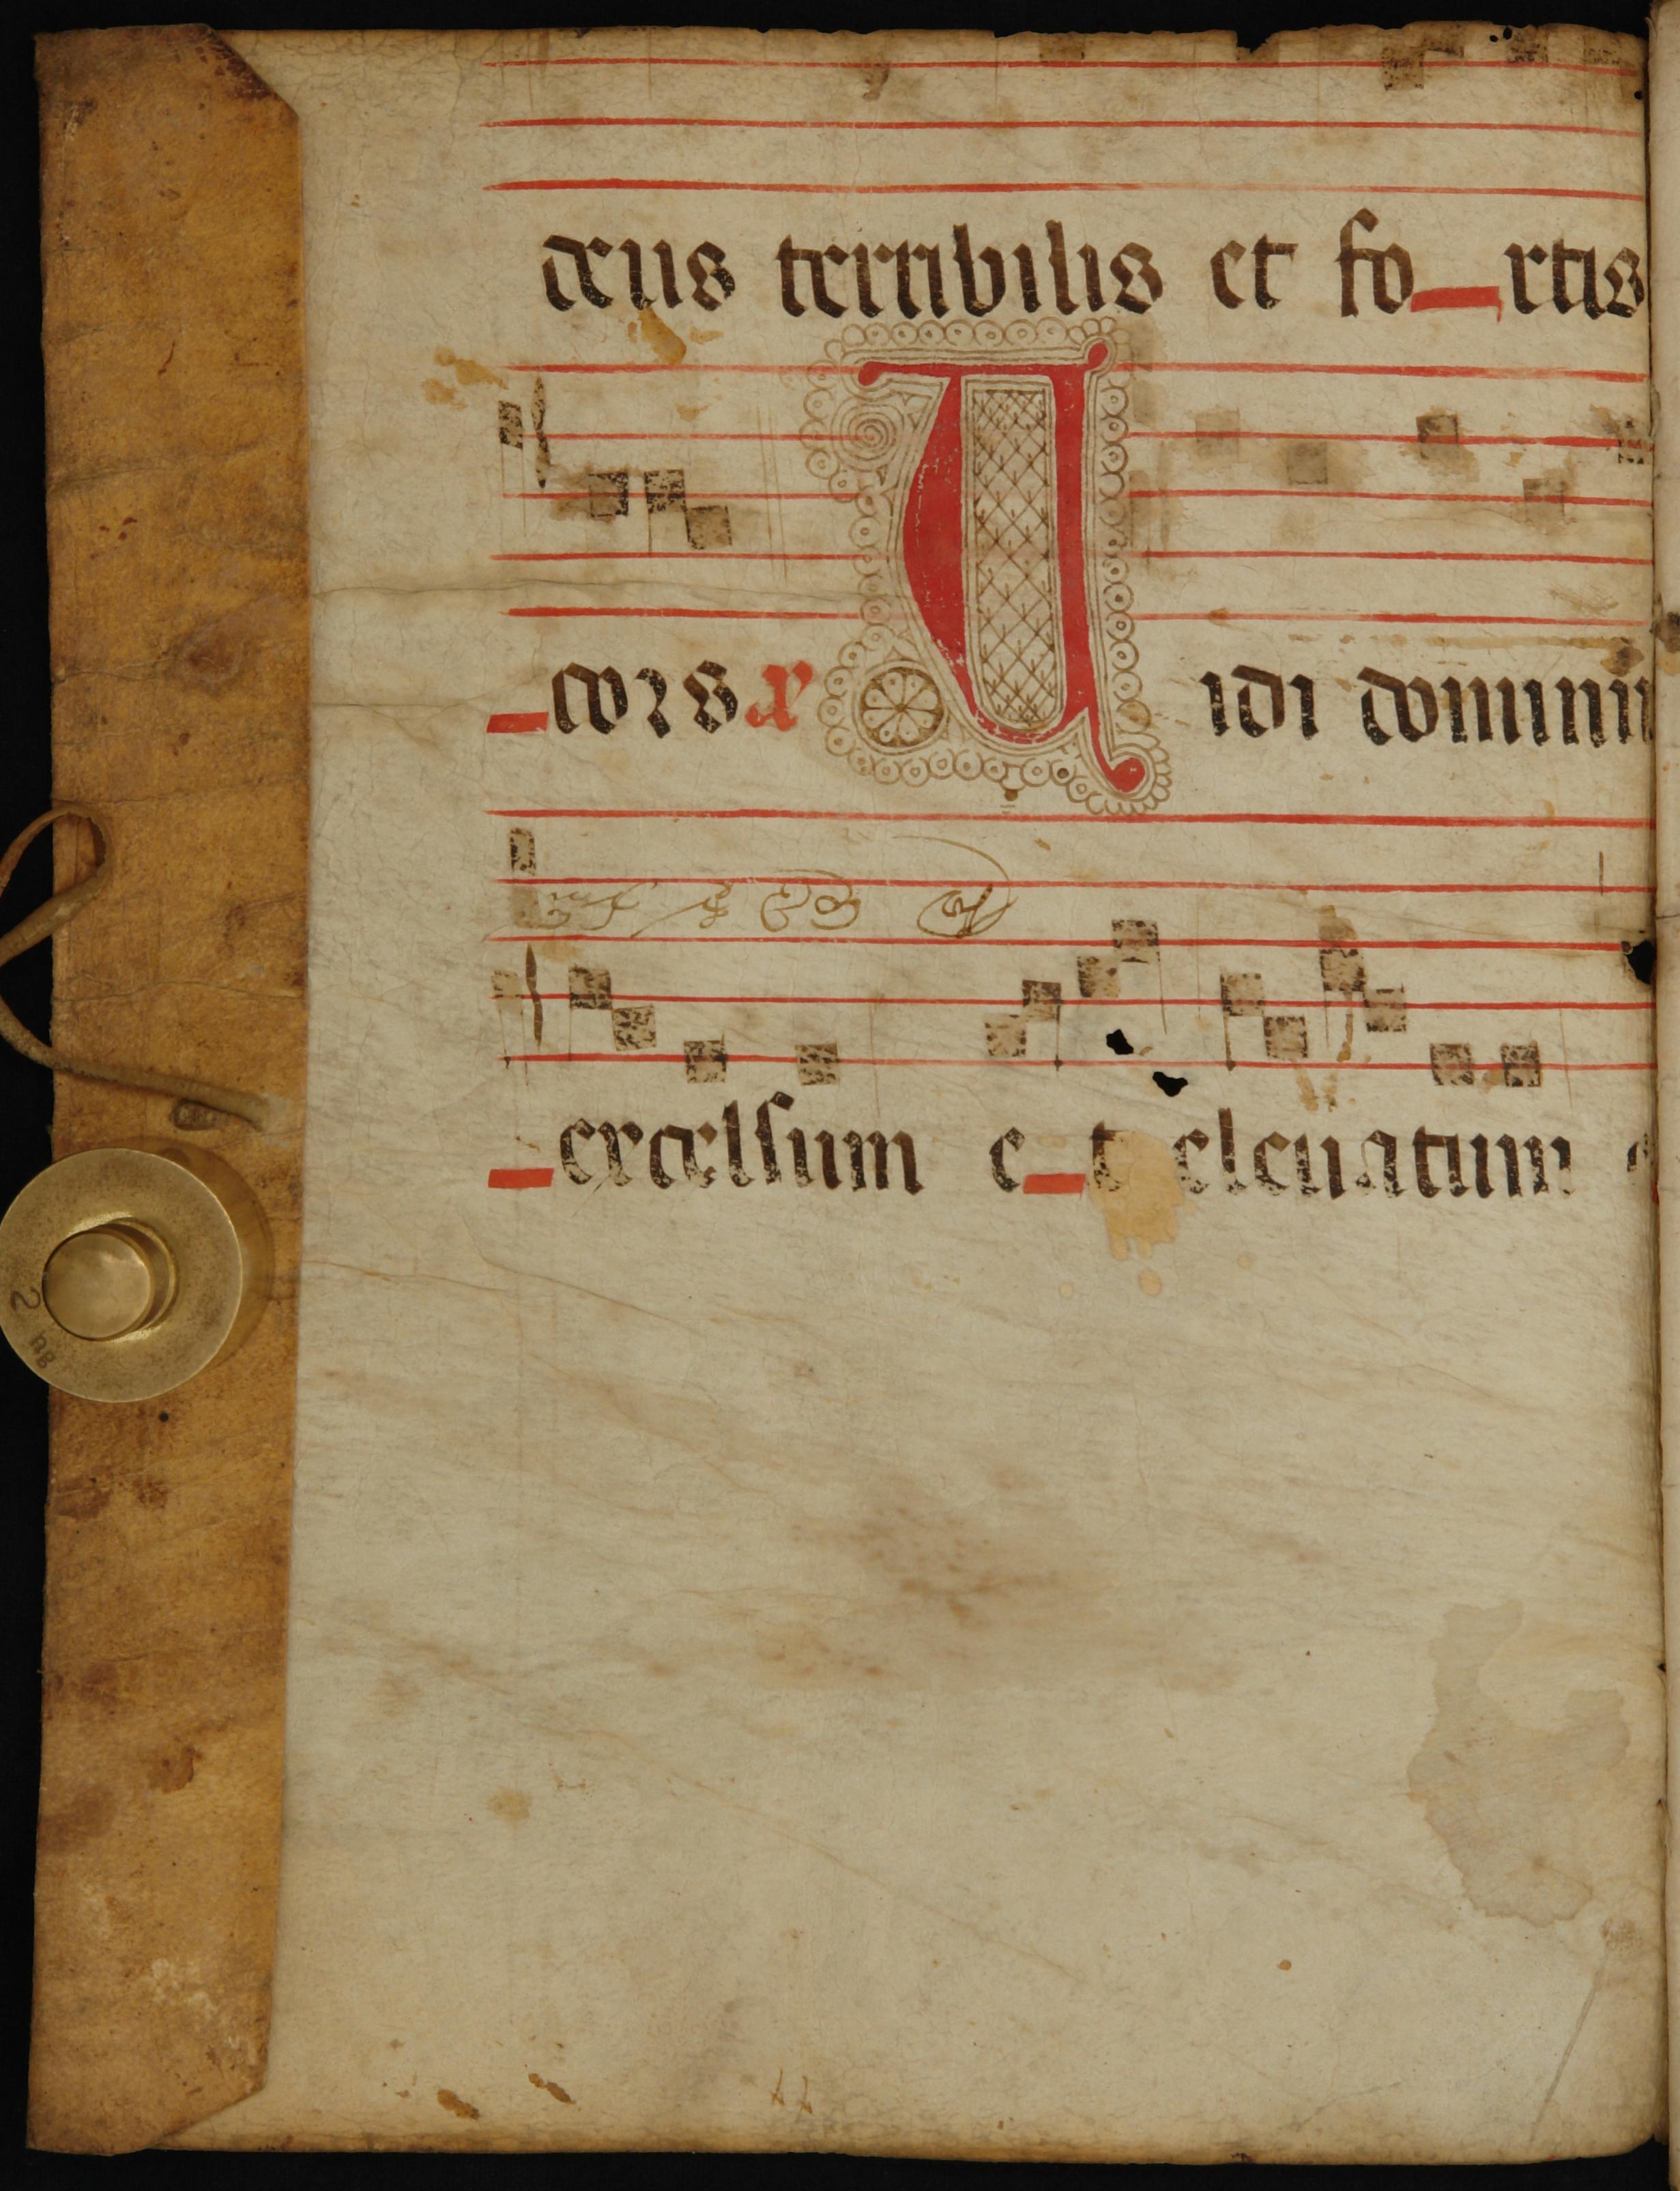 deus terribilis et fo rtis
cors x Uidi dominu
excelsum e t eleuatum
2